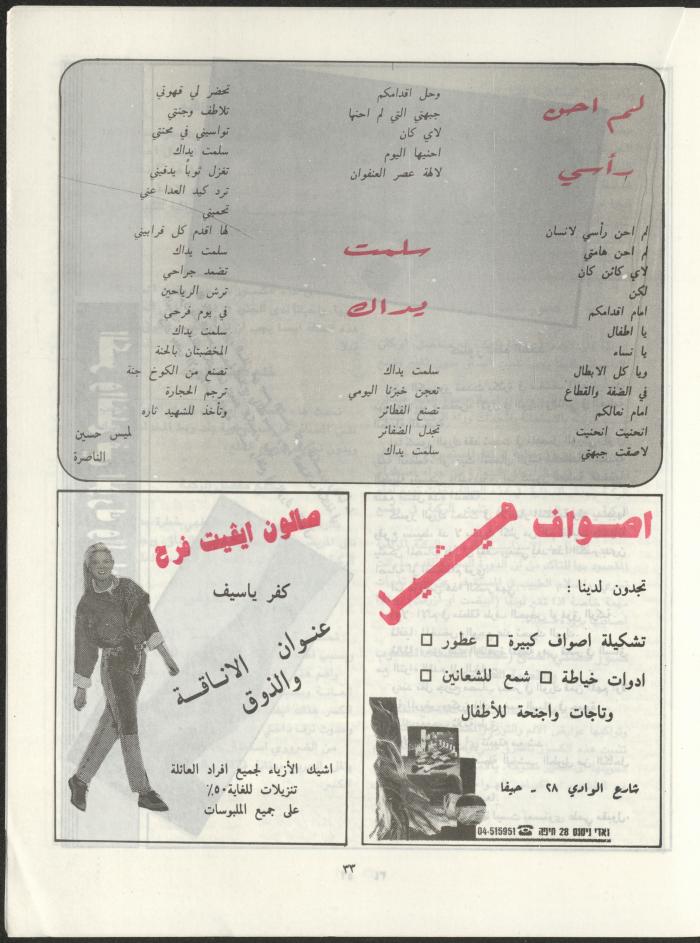 لم احن
رأسي
لم احن رأسي لانسان
لم احن هامتي
لاي كائن كان
لكن
امام اقدامكم
يا اطفال
يا نساء
ويا كل الابطال
في الضفة والقطاع
امام نعالكم
انحنيت انحنيت
لاصقت جبهتي
وحل اقدامكم
جبهتي التي لم احنها
لاي كان
احنيها اليوم
لالهة عصر العنفوان
سلمت
يداك
سلمت يداك
تعجن خبزنا اليومي
تصنع الفطائر
تجدل الضفائر
سلمت يداك
تحضر لي قهوتي
تلاطف وجنتي
تواسيني في محنتي
سلمت يداك
تغزل ثوباً يدفيني
ترد كيد العدا عني
تحميني
لها اقدم كل قرابيني
سلمت يداك
تضمد جراحي
ترش الرياحين
في يوم فرحي
سلمت يداك
المخضبتان بالحنة
تصنع من الكوخ جنة
ترجم الحجارة
وتأخذ للشهيد ثاره
لميس حسين
الناصرة
اصواف
ميشيل
تجدون لدينا :
تشكيلة اصواف كبيرة □ عطور □
ادوات خياطة □ شمع للشعانين □
وتاجات واجنحة للأطفال
شارع الوادي ٢٨ ـ حيفا
ואדי ניסנס 28 חיפה ☎ 04-515951
صالون ايڤيت فرح
كفر ياسيف
عنوان الاناقة
والذوق
اشيك الأزياء لجميع افراد العائلة
تنزيلات للغاية ٥٠٪
على جميع الملبوسات
٣٣